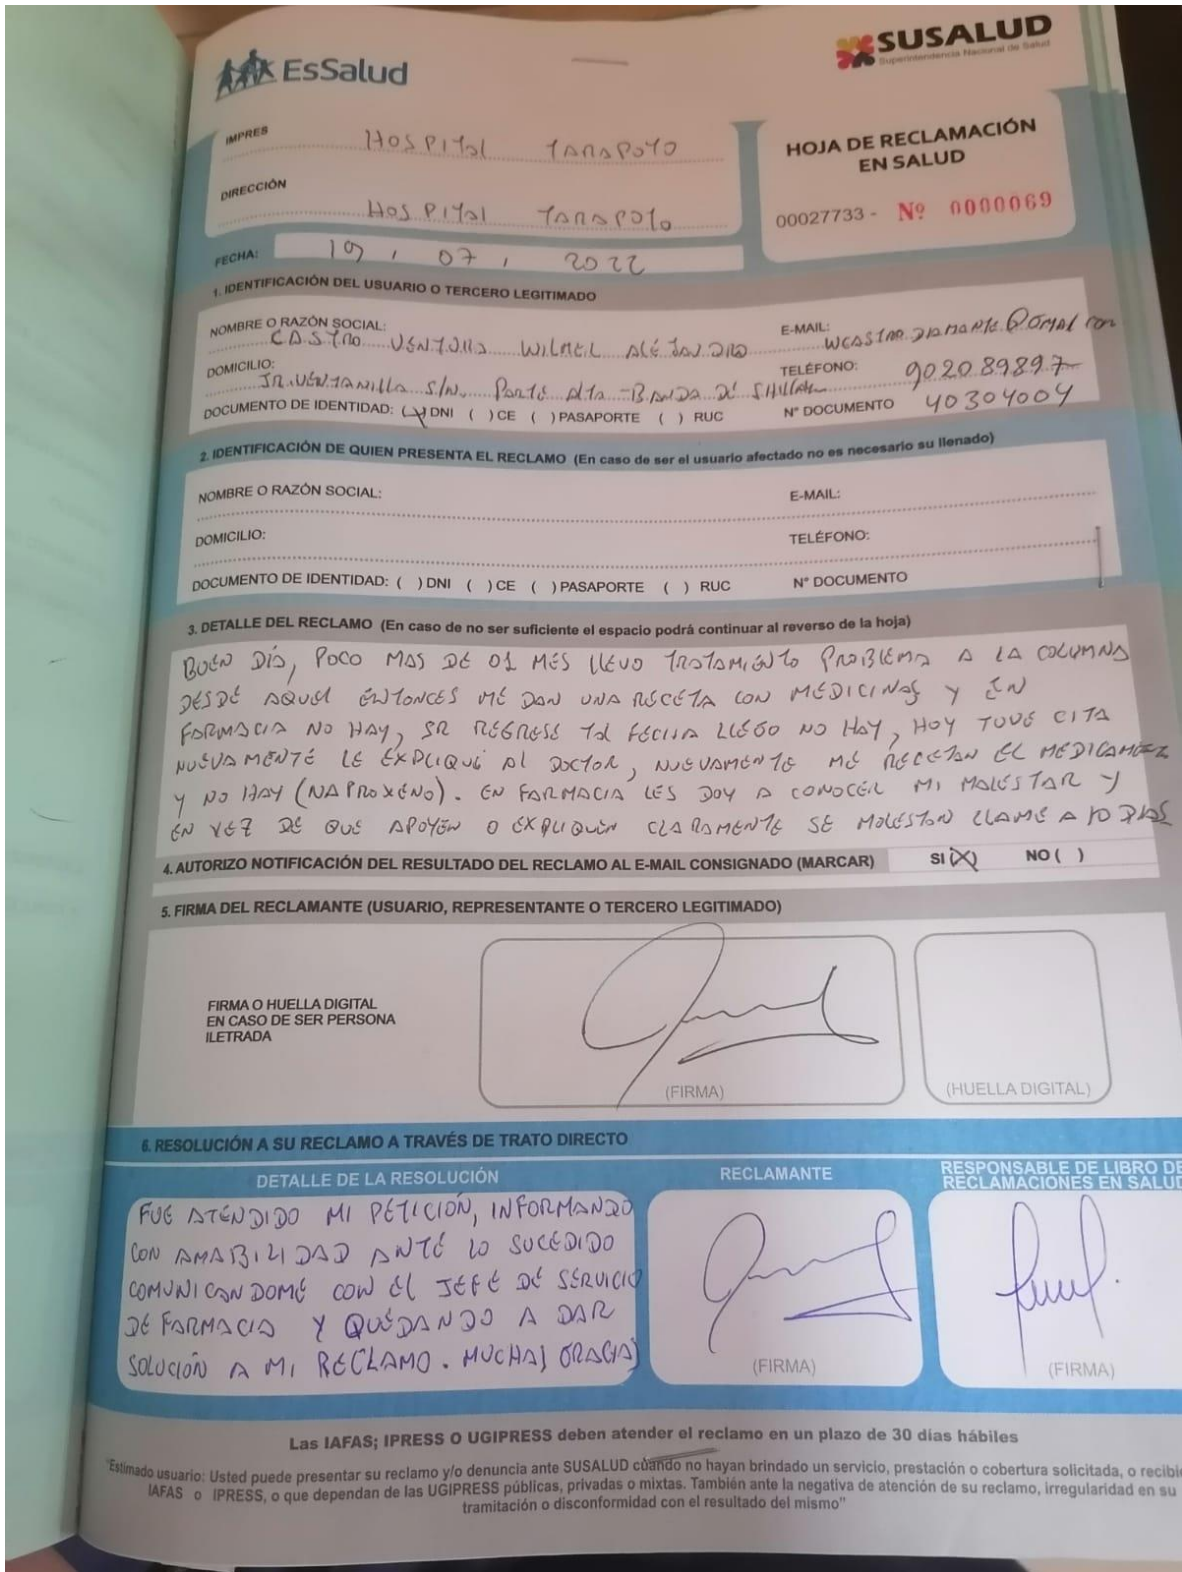 EsSalud
SUSALUD
Superintendencia Nacional de Salud
IMPRES HOSPITAL TARAPOTO
DIRECCIÓN HOSPITAL TARAPOTO
FECHA: 19 / 07 / 2022
HOJA DE RECLAMACIÓN
EN SALUD
00027733 - Nº 0000069
1. IDENTIFICACIÓN DEL USUARIO O TERCERO LEGITIMADO
NOMBRE O RAZÓN SOCIAL: CASTRO VENTURA WILMEL ALEJANDRO E-MAIL: WCASTRO.DIAMANTE@GMAIL.COM
DOMICILIO: JR. VENTANILLA S/N. PARTE ALTA - BANDA DE SHILCAYO TELÉFONO: 902089897
DOCUMENTO DE IDENTIDAD: (X) DNI ( ) CE ( ) PASAPORTE ( ) RUC N° DOCUMENTO 40304004
2. IDENTIFICACIÓN DE QUIEN PRESENTA EL RECLAMO (En caso de ser el usuario afectado no es necesario su llenado)
NOMBRE O RAZÓN SOCIAL: E-MAIL:
DOMICILIO: TELÉFONO:
DOCUMENTO DE IDENTIDAD: ( ) DNI ( ) CE ( ) PASAPORTE ( ) RUC N° DOCUMENTO
3. DETALLE DEL RECLAMO (En caso de no ser suficiente el espacio podrá continuar al reverso de la hoja)
BUEN DÍA, POCO MAS DE 01 MES LLEVO TRATAMIENTO PROBLEMA A LA COLUMNA
DESDE AQUEL ENTONCES ME DAN UNA RECETA CON MEDICINAS Y EN
FARMACIA NO HAY, SR REGRESE TAL FECHA LLEGO NO HAY, HOY TUVE CITA
NUEVAMENTE LE EXPLIQUÉ AL DOCTOR, NUEVAMENTE ME RECETAN EL
Y NO HAY (NAPROXENO). EN FARMACIA LES DOY A CONOCER MI MALESTAR Y
EN VEZ DE QUE APOYEN O EXPLIQUEN CLARAMENTE SE MOLESTAN LLAME A 10 DIAS
4. AUTORIZO NOTIFICACIÓN DEL RESULTADO DEL RECLAMO AL E-MAIL CONSIGNADO (MARCAR) SI (X) NO ( )
5. FIRMA DEL RECLAMANTE (USUARIO, REPRESENTANTE O TERCERO LEGITIMADO)
FIRMA O HUELLA DIGITAL
EN CASO DE SER PERSONA
ILETRADA
(FIRMA)
(HUELLA DIGITAL)
6. RESOLUCIÓN A SU RECLAMO A TRAVÉS DE TRATO DIRECTO
DETALLE DE LA RESOLUCIÓN
FUE ATENDIDO MI PETICIÓN, INFORMANDO
CON AMABILIDAD ANTE LO SUCEDIDO
COMUNICANDOME CON EL JEFE DE SERVICIO
DE FARMACIA Y QUEDANDO A DAR
SOLUCIÓN A MI RECLAMO. MUCHAS GRACIAS
RECLAMANTE
(FIRMA)
RESPONSABLE DE LIBRO DE
RECLAMACIONES EN SALUD
(FIRMA)
Las IAFAS; IPRESS O UGIPRESS deben atender el reclamo en un plazo de 30 días hábiles
"Estimado usuario: Usted puede presentar su reclamo y/o denuncia ante SUSALUD cuando no hayan brindado un servicio, prestación o cobertura solicitada, o
IAFAS o IPRESS, o que dependan de las UGIPRESS públicas, privadas o mixtas. También ante la negativa de atención de su reclamo, irregularidad en su
tramitación o disconformidad con el resultado del mismo"